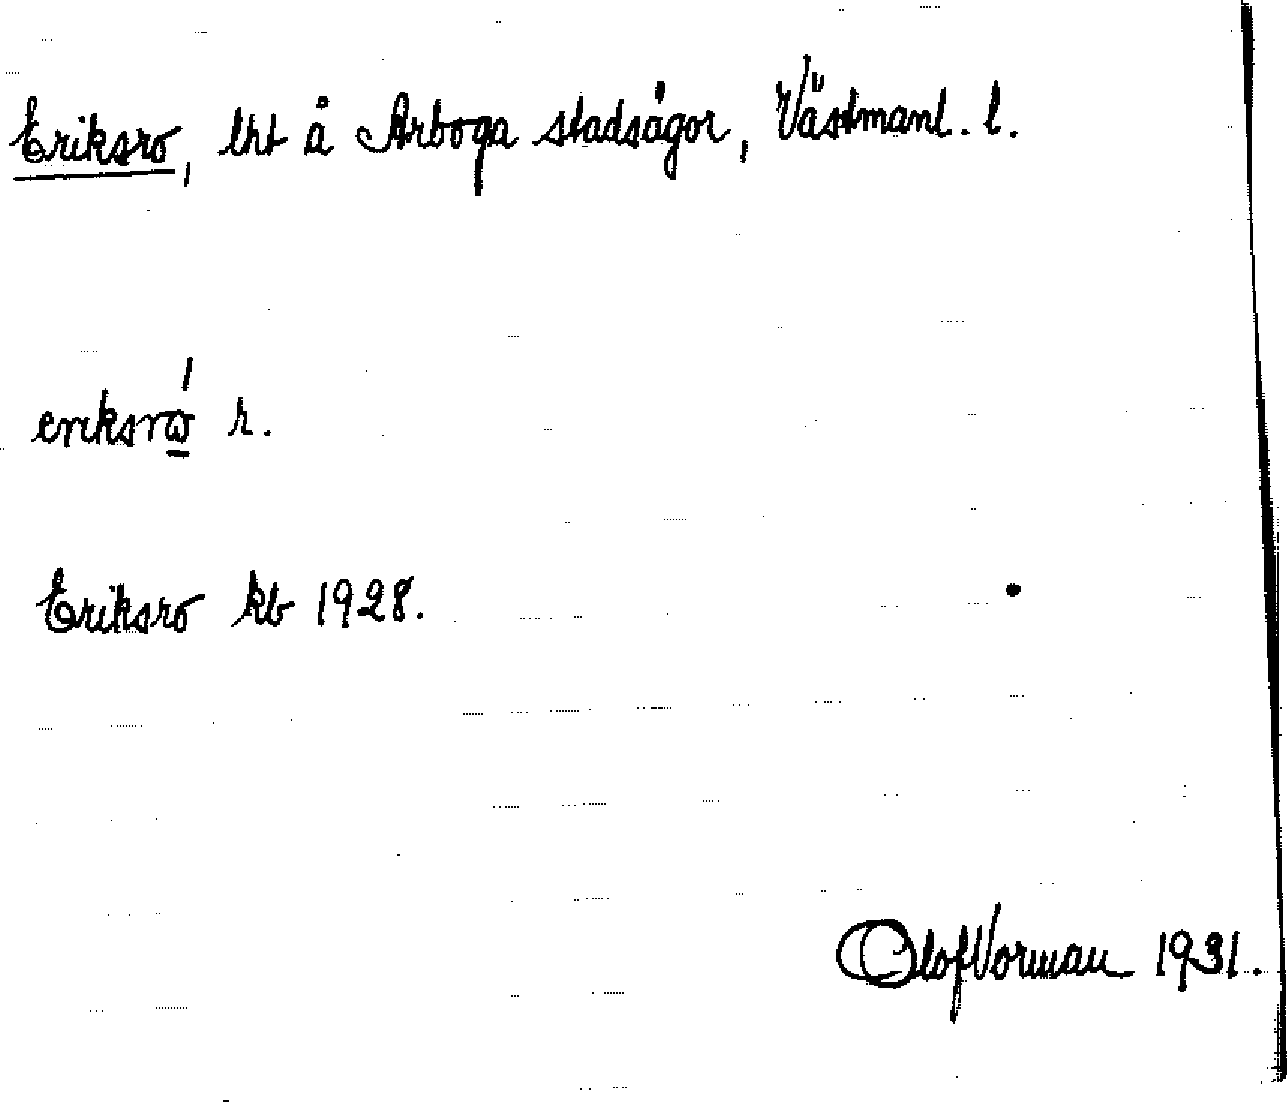 Eriksro, lht å Arboga stadsägor, Västmanl. l.
eriksrώ̲ r.
Eriksro kb 1928.
Olof Vorman 1931.